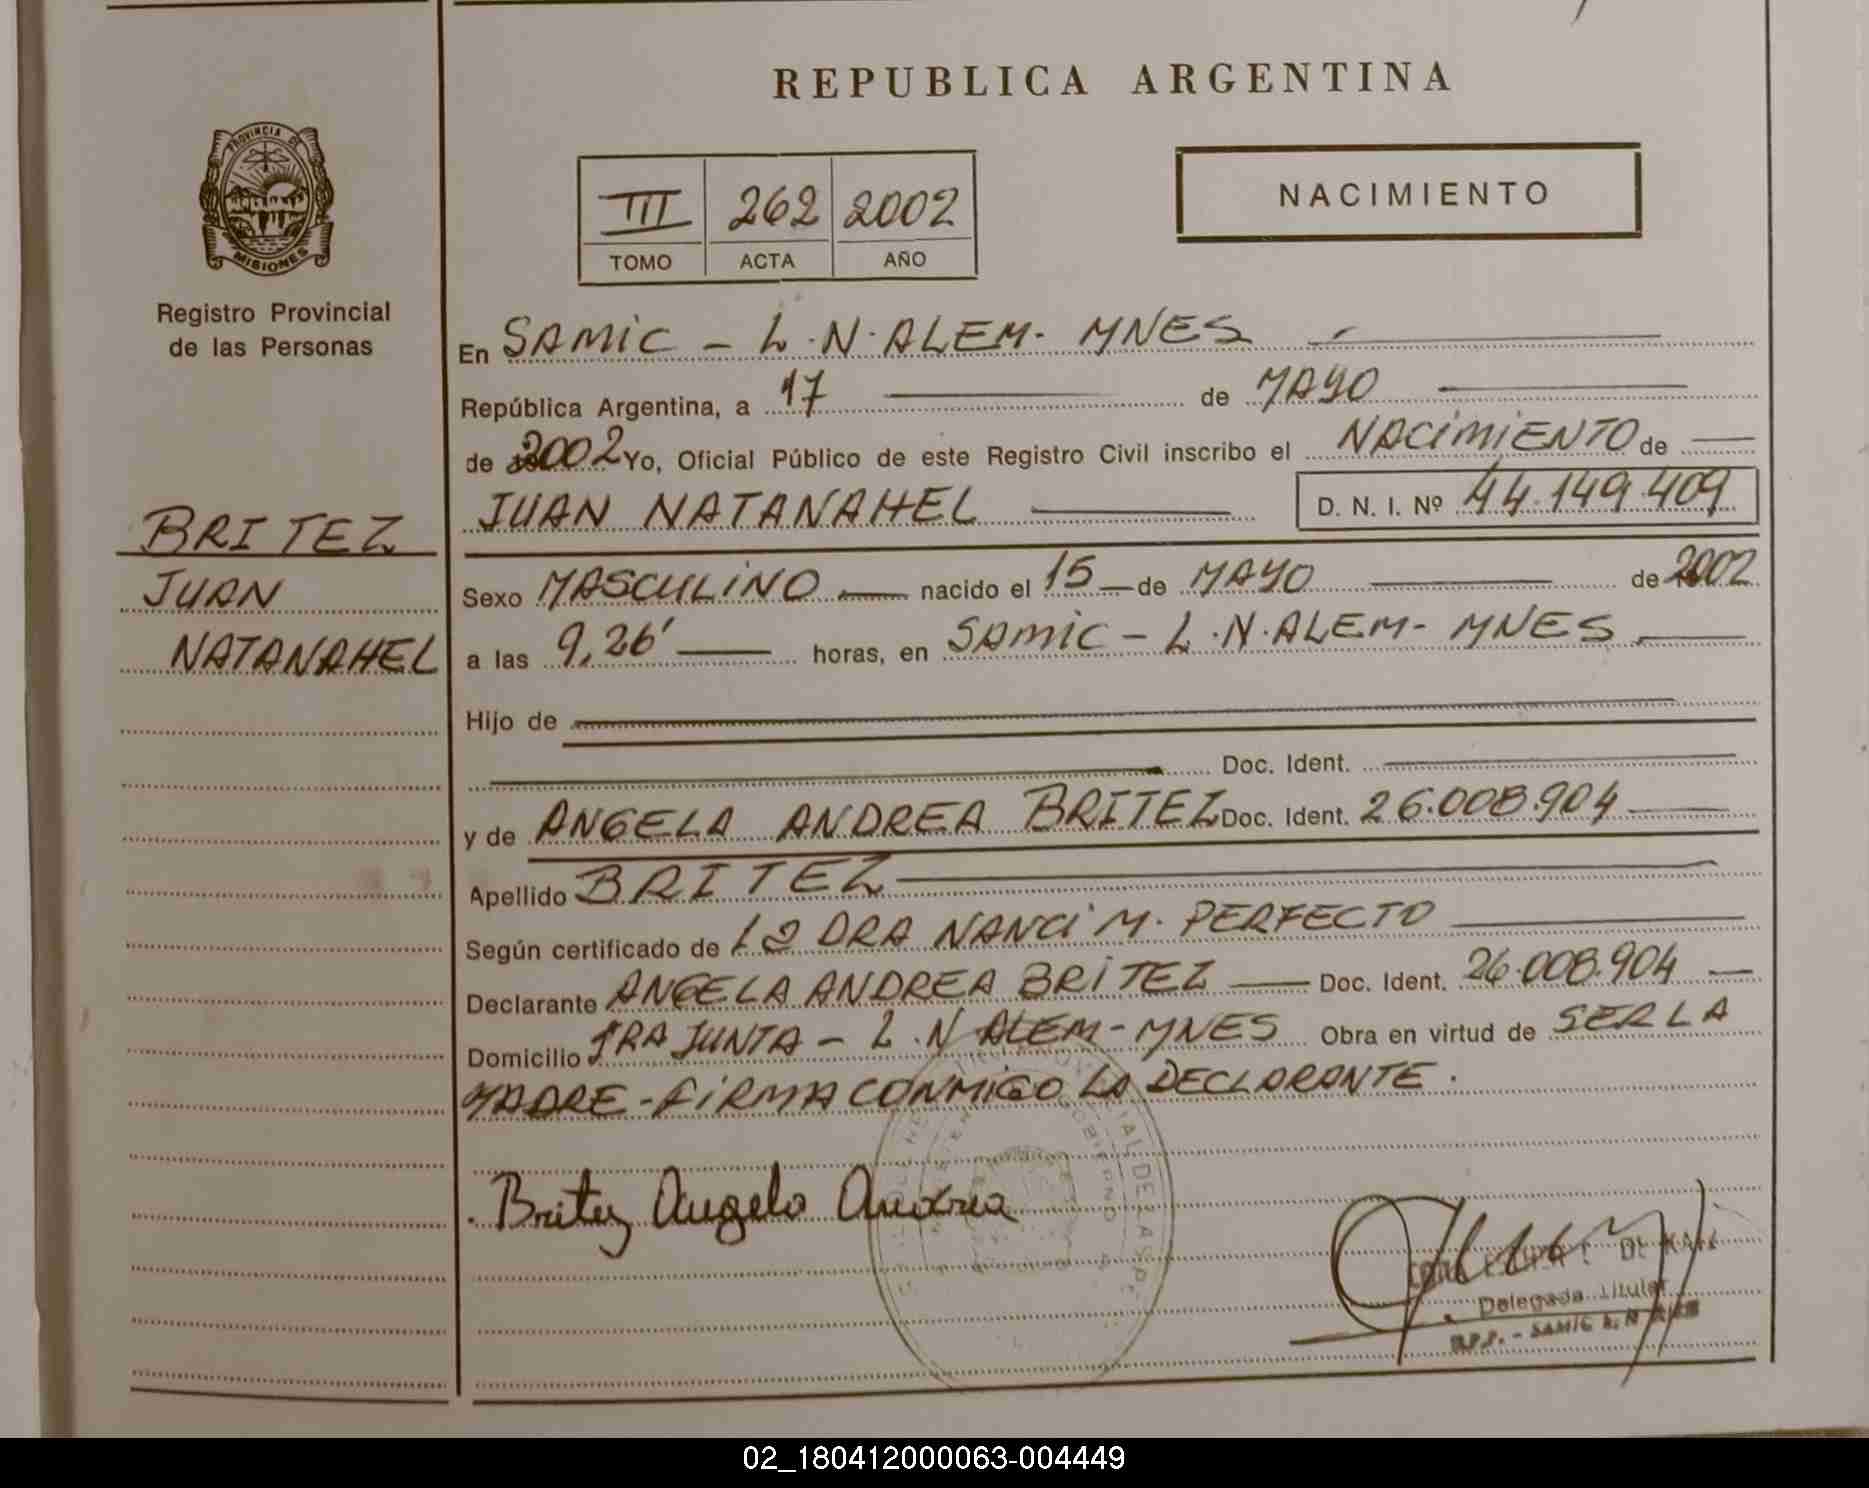 REPUBLICA ARGENTINA
PROVINCIA DE
MISIONES
Registro Provincial
de las Personas
III 262 2002
TOMO ACTA AÑO
NACIMIENTO
BRITEZ
JUAN
NATANAHEL
En SAMIC - L.N. ALEM - MNES
República Argentina, a 17 de MAYO
de 2002 Yo, Oficial Público de este Registro Civil inscribo el NACIMIENTO de
JUAN NATANAHEL D. N. I. Nº 44.149.409
Sexo MASCULINO nacido el 15 de MAYO de 2002
a las 9,26' horas, en SAMIC - L.N. ALEM - MNES
Hijo de
Doc. Ident.
y de ANGELA ANDREA BRITEZ Doc. Ident. 26.008.904
Apellido BRITEZ
Según certificado de LA DRA NANCI M. PERFECTO
Declarante ANGELA ANDREA BRITEZ Doc. Ident. 26.008.904
Domicilio 1RA JUNTA - L.N ALEM - MNES Obra en virtud de SER LA
MADRE - FIRMA CONMIGO LA DECLARANTE.
Britez Angela Andrea
Delegada Titular
SAMIC L. N. ALEM
02_180412000063-004449